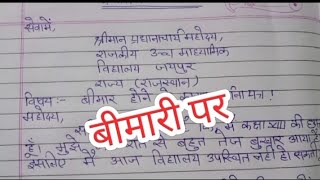 सेवामें,
श्रीमान प्रधानाचार्य महोदय,
राजकीय उच्च माध्यमिक
विद्यालय जयपुर
राज्य (राजस्थान)
विषय:- बीमार होने
महोदय,
बीमारी पर
कक्षा
हूँ। मुझे से बहुत तेज बुखार आया
इसलिए मैं आज विद्यालय उपस्थित नहीं हो सकता